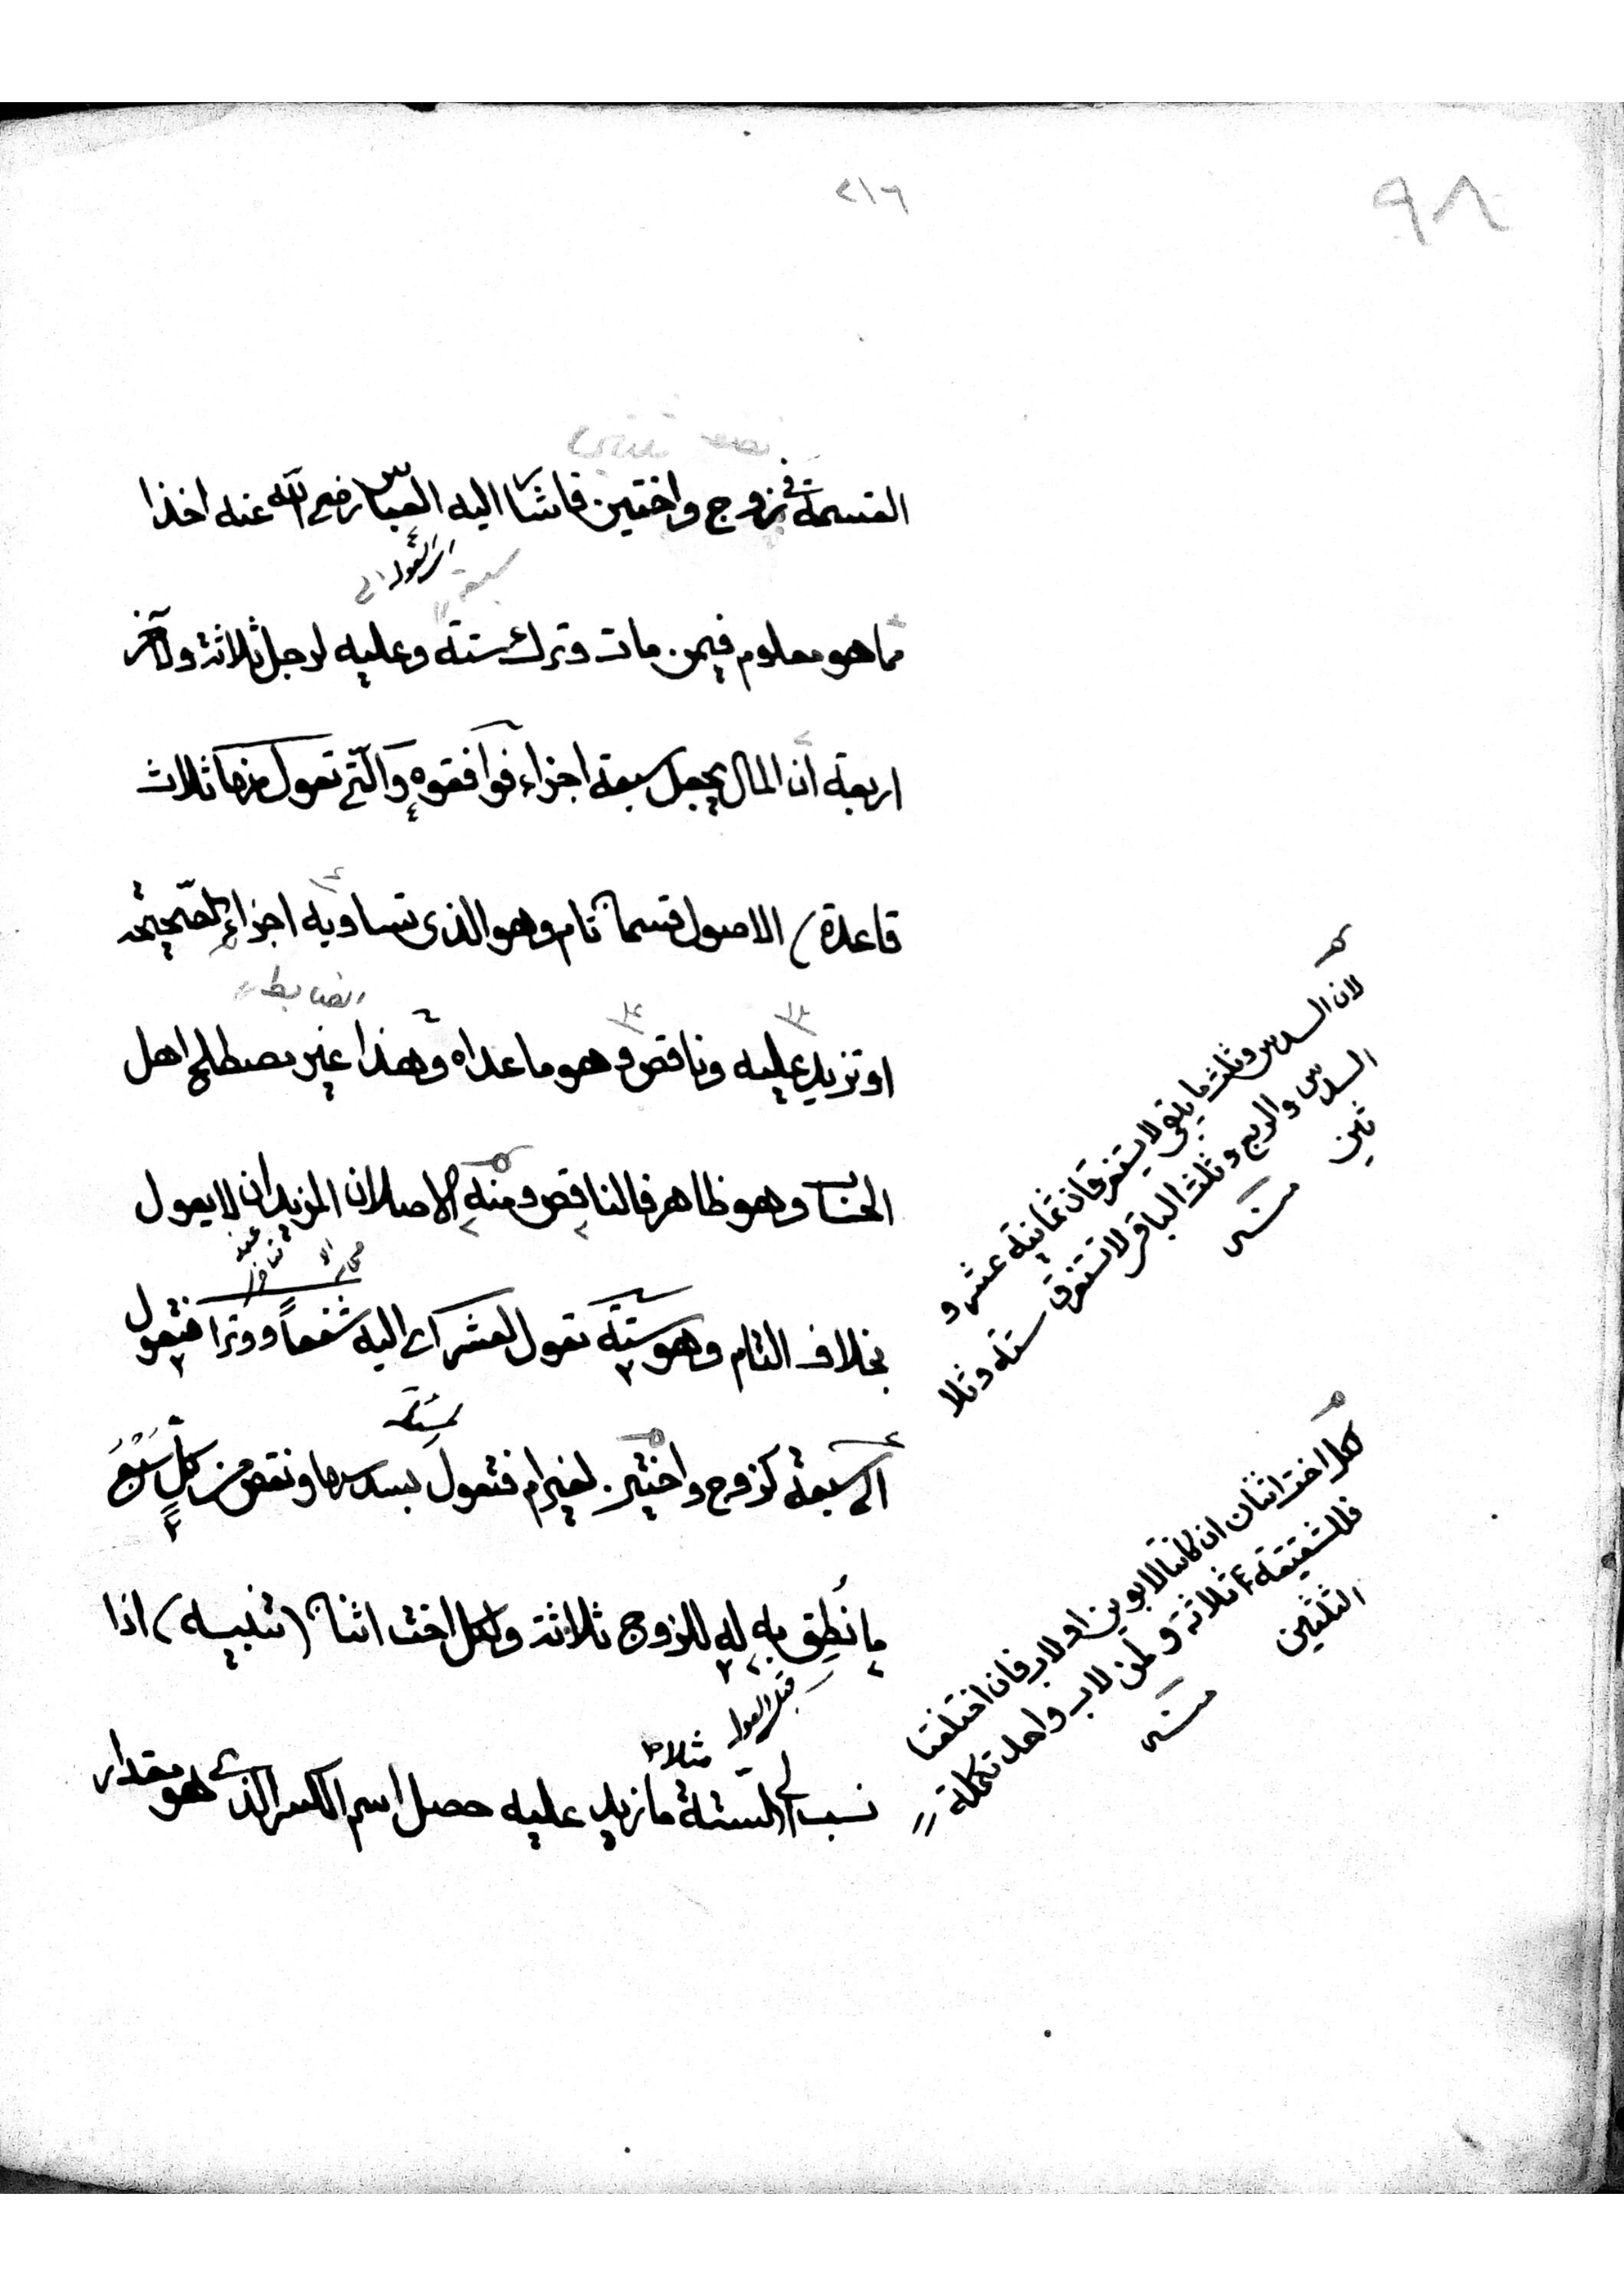 ٩٨
٢١٦
القسمة في زوج واختين فاشار اليه العباس رضي الله عنه اخذا
اي القول
سبعة
مما هو معلوم فيمن مات وترك ستة وعليه لرجل ثلاثة ولآخر
اربعة ان المال يجعل سبعة اجزاء فوافقوه والتي تعول منها ثلاث
قاعدة) الاصول قسمان تام وهو الذي تساويه اجزاؤه الصحيحة
الضابط
او تزيد عليه وناقص وهو ما عداه وهذا غير مصطلح اهل
الحساب وهو ظاهر فالناقص ومنه الاصلان المزيدان لا يعول
بخلاف التام وهو ستة تعول لعشر اي اليه شفعا ووترا فتعول
الى سبعة كزوج واختين لغير ام فتعول بسدسها ونقص من كل سبع
ما نطق به له للزوج ثلاثة ولكل اخت اثنان (تنبيه) اذا
قبل العول
مثلا
نسب الى الستة ما زيد عليه حصل اسم الكسر الذي هو مقدار
لان السدس وثلث ما يبقى لا يستغرقان ثمانية عشر و
السدس والربع وثلث الباقي لا تستغرق ستة وثلا
ثين
لكل اخت اثنان ان كانتا لابوين او لاب فان اختلفتا
فللشقيقة ثلاثة ولمن لاب واحد تكملة
الثلثين